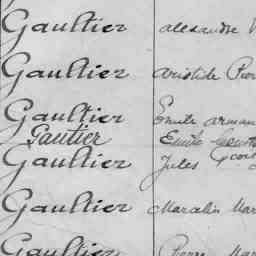 Gaultier alexandre
Gaultier aristide
Gaultier Emile
Gautier Emile
Gaultier Jules
Gaultier Marcelin
Gaultier Pierre